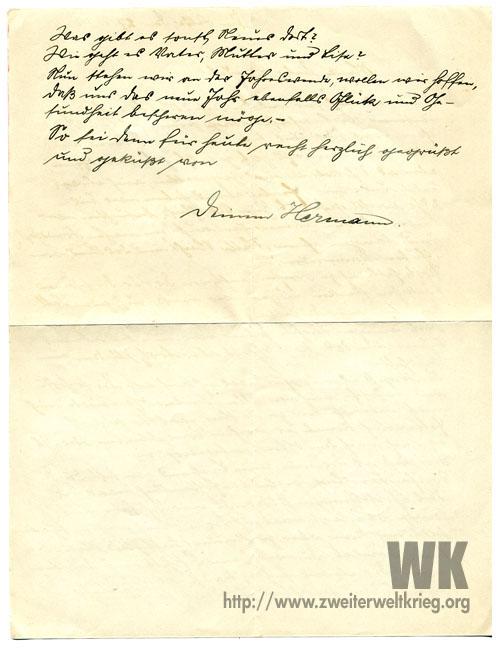 Was gibt es sonst Neues dort?
Wie geht es Vater, Mutter und Lisa?
Nun stehen wir an der Jahreswende, wollen wir hoffen,
daß uns das neue Jahr ebenfalls Glück und Ge-
sundheit bescheren möge.-
So sei denn für heute recht herzlich gegrüßt
und geküßt von
Deinem Hermann.
WK
http://www.zweiterweltkrieg.org